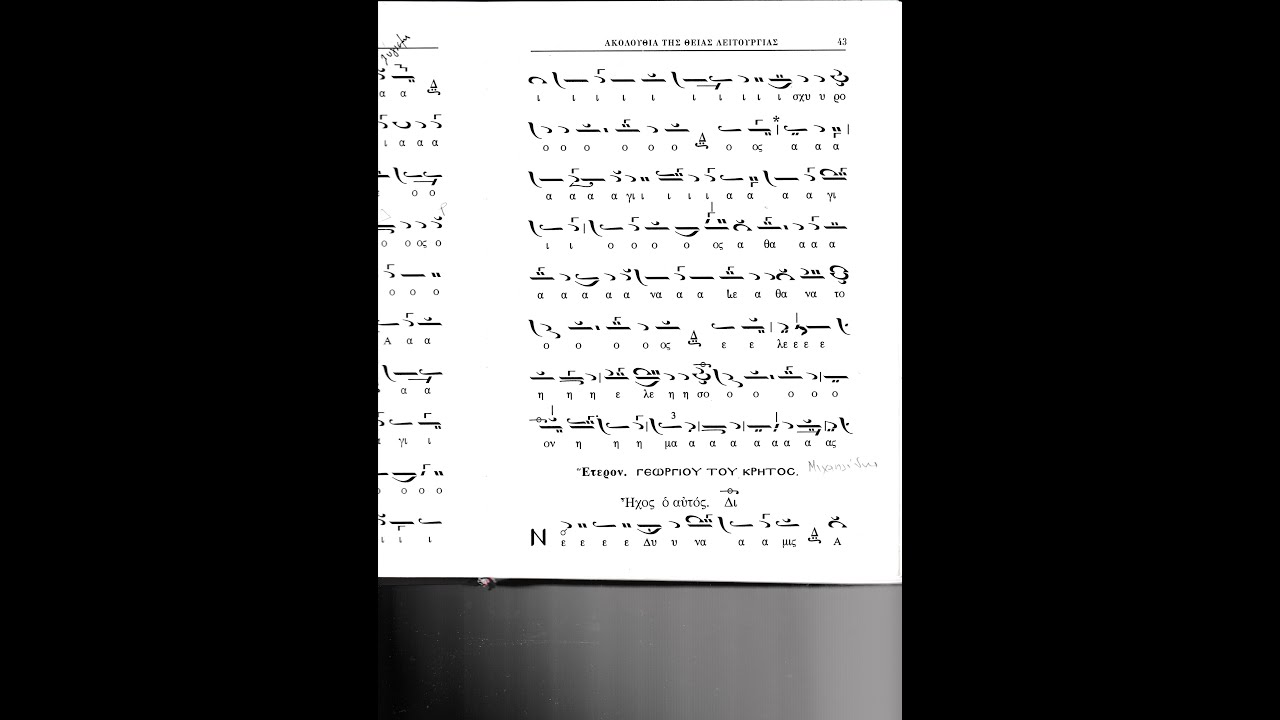 ΑΚΟΛΟΥΘΙΑ ΤΗΣ ΘΕΙΑΣ ΛΕΙΤΟΥΡΓΙΑΣ 43
ι ι ι ι ι ι ι ι ι ι ι σχυ υ ρο
ο ο ο ο ο ο ο ος α α α
α α α α γι ι ι ι ι α α α α γι
ι ι ο ο ο ο ος α θα α α α
α α α α α να α α α θα να το
ο ο ο ο ος ε ε λε ε ε ε
η η η ε λε η η σο ο ο ο ο ο
ον η η η μα α α α α α α ας
Ἕτερον. ΓΕΩΡΓΙΟΥ ΤΟΥ ΚΡΗΤΟΣ.
Ἦχος ὁ αὐτός. Δι
Ν ε ε ε ε Δυ υ να α α μις Α
α α
ι α α α
ο ο
ο ο ος ο
ο ο ο
Α α α
α α
γι ι
ο ο ο
ι ι ι